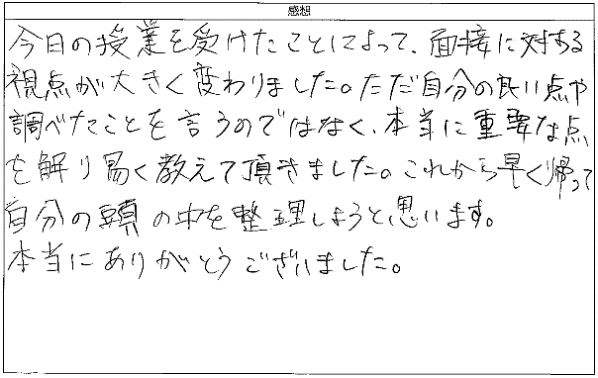 感想
今日の授業を受けたことによって、面接に対する
視点が大きく変わりました。ただ自分の良い点や
調べたことを言うのではなく、本当に重要な点
を解り易く教えて頂きました。これから早く帰って
自分の頭の中を整理しようと思います。
本当にありがとうございました。